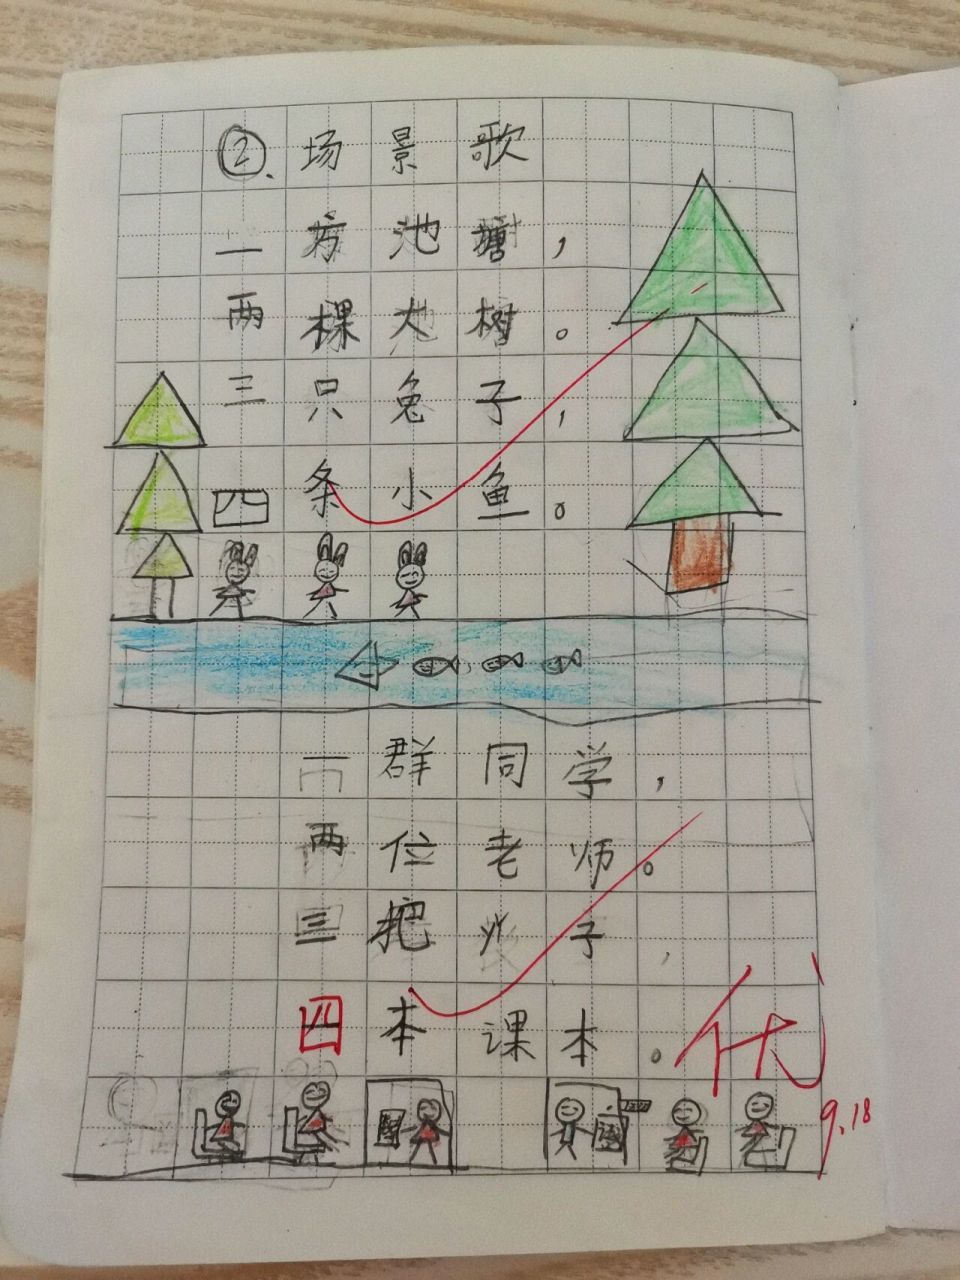 ②.场景歌
一方池塘，
两棵大树。
三只兔子，
四条小鱼。
一群同学，
两位老师。
三把 子，
四本课本。
优
9.18